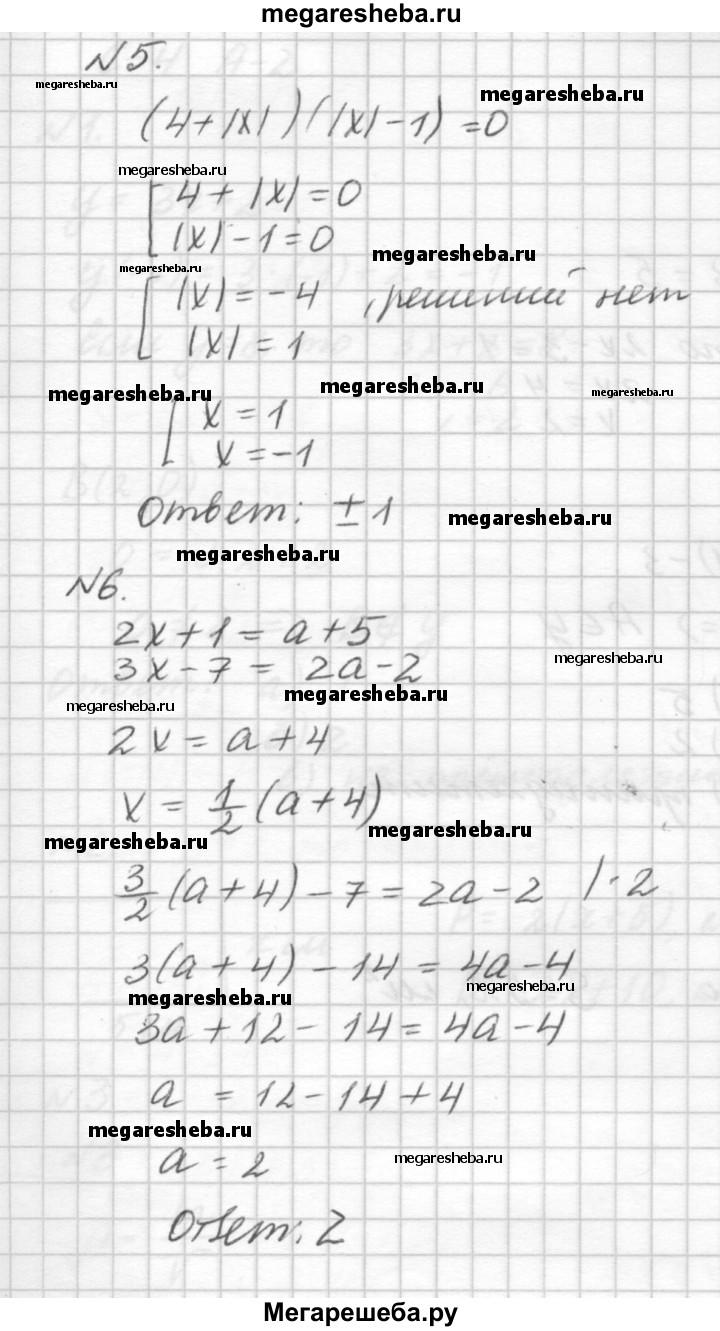 megaresheba.ru
№5.
megaresheba.ru
megaresheba.ru
(4+|x|)(|x|-1)=0
megaresheba.ru
4+|x|=0
|x|-1=0
megaresheba.ru
megaresheba.ru
|x|=-4 , решений нет
|x|=1
megaresheba.ru
megaresheba.ru
megaresheba.ru
x=1
x=-1
Ответ: ±1
megaresheba.ru
megaresheba.ru
№6.
2x+1=a+5
3x-7= 2a-2
megaresheba.ru
megaresheba.ru
megaresheba.ru
2x=a+4
x=1/2(a+4)
megaresheba.ru
megaresheba.ru
3/2(a+4)-7=2a-2 |·2
3(a+4)-14=4a-4
megaresheba.ru
megaresheba.ru
3a+12-14=4a-4
a =12-14+4
megaresheba.ru
megaresheba.ru
a=2
Ответ: 2
Мегарешеба.ру